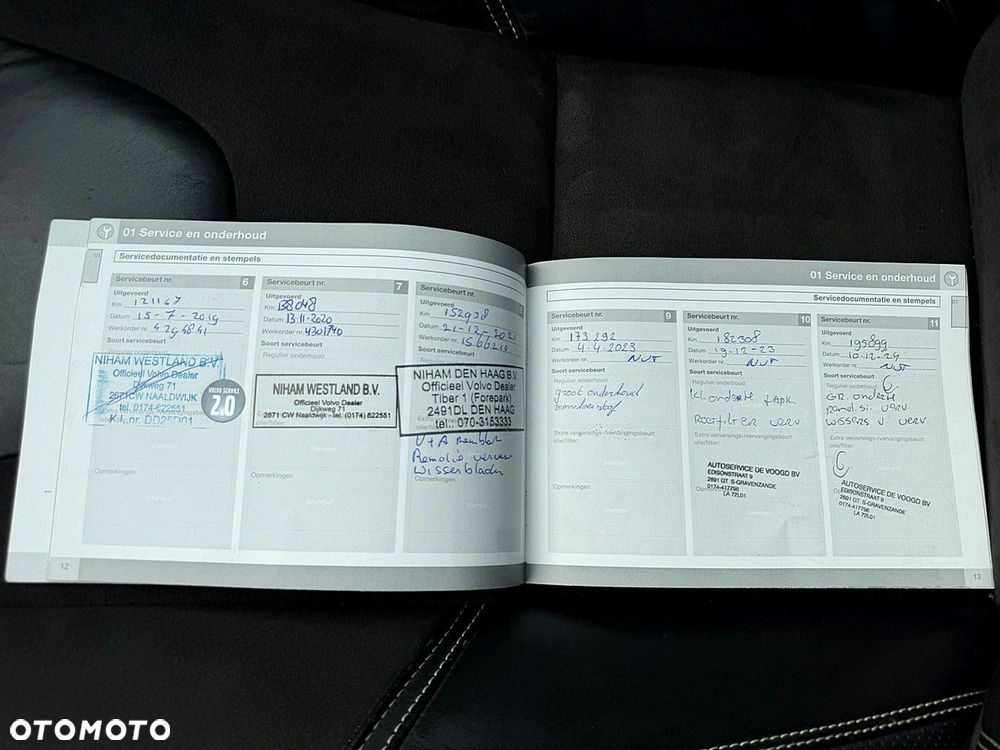 01 Service en onderhoud
01
Servicedocumentatie en stempels
Servicebeurt nr. 6
Uitgevoerd
Km 121147
Datum 15-7-2019
Werkorder nr. 4294841
Soort servicebeurt
NIHAM WESTLAND B.V.
Officieel Volvo Dealer
Dijkweg 71
2671CW NAALDWIJK
tel. 0174-622551
VOLVO SERVICE
2.0
Opmerkingen
Stempel
12
Servicebeurt nr. 7
Uitgevoerd
Km 138048
Datum 13-11-2020
Werkorder nr. 4301740
Soort servicebeurt
Regulier onderhoud
NIHAM WESTLAND B.V.
Officieel Volvo Dealer
Dijkweg 71
2671 CW Naaldwijk - tel. (0174) 622551
olie/filter:
Opmerkingen
Stempel
Servicebeurt nr. 8
Uitgevoerd
Km 152908
Datum 21-12-2021
Werkorder nr.
Soort servicebeurt
NIHAM DEN HAAG B.V.
Officieel Volvo Dealer
Tiber 1 (Forepark)
2491DL DEN HAAG
tel.: 070-3153333
V+A
Remolie
Wisserbladen
Opmerkingen
Stempel
01 Service en onderhoud
Servicedocumentatie en stempels
01
Servicebeurt nr. 9
Uitgevoerd
Km 173292
Datum 4-4-2023
Werkorder nr. NVT
Soort servicebeurt
Regulier onderhoud
groot onderhoud
Extra verversings-/vervangingsbeurt
olie/filter:
Opmerkingen
Stempel
Servicebeurt nr. 10
Uitgevoerd
Km 182308
Datum 19-12-23
Werkorder nr. NVT
Soort servicebeurt
Regulier onderhoud
+ APK
verv
Extra verversings-/vervangingsbeurt
olie/filter:
AUTOSERVICE DE VOOGD BV
EDISONSTRAAT 9
2691 GT S-GRAVENZANDE
0174-417796
LA 72L01
Stempel
Servicebeurt nr. 11
Uitgevoerd
Km 195099
Datum 10-12-24
Werkorder nr. NVT
Soort servicebeurt
Regulier onderhoud
GR.
verv
wissers v verv
Extra verversings-/vervangingsbeurt
olie/filter:
AUTOSERVICE DE VOOGD BV
EDISONSTRAAT 9
2691 GT S-GRAVENZANDE
0174-417796
LA 72L01
13
OTOMOTO